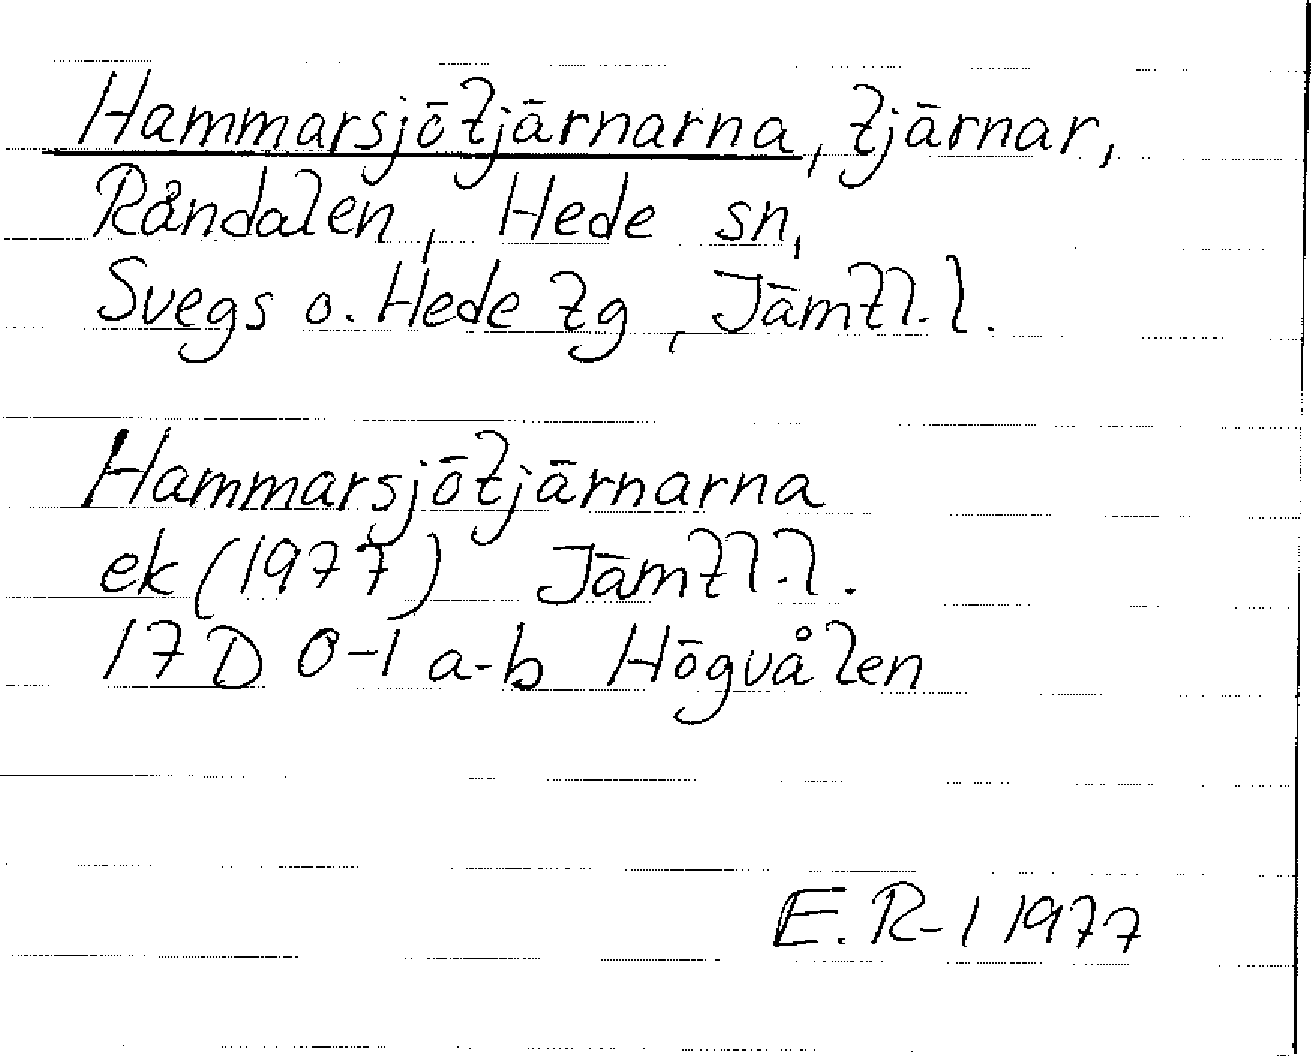 Hammarsjötjärnarna, tjärnar,
Råndalen, Hede sn,
Svegs o. Hede tg, Jämtl. l.
Hammarsjötjärnarna
ek (1977) Jämtl. l.
17 D 0-1 a-b Högvålen
E. R-l 1977